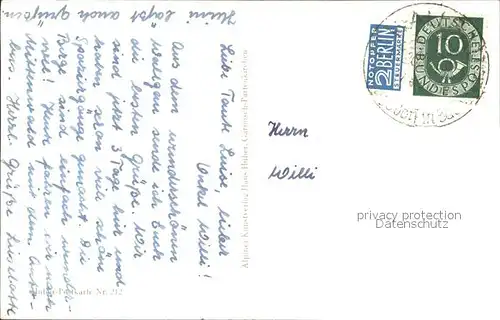 Heini lasst auch grüßen
Liebe Tante Luise, lieber
Onkel Willi!
Aus dem wunderschönen
Wallgau sende ich Euch
die besten Grüße. Wir
sind jetzt 3 Tage hier und
haben schon viele schöne
Spaziergänge gemacht. Die
Berge sind einfach wunder-
voll! Heute fahren wir nach
Mittenwald mit dem Auto-
bus. Herzl. Grüße Liselotte
Huber-Postkarte Nr. 212
Alpiner Kunstverlag Hans Huber, Garmisch-Partenkirchen
NOTOPFER
2 BERLIN
STEUERMARKE
DEUTSCHE
BUNDESPOST
10
Herrn
Willi
privacy protection
Datenschutz